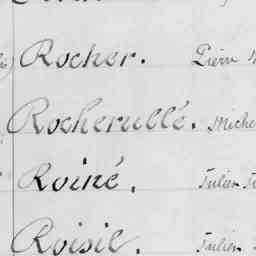 Rocher. Pierre
Rocherullé. Miche
Roiné. Julien
Roisil. Julien